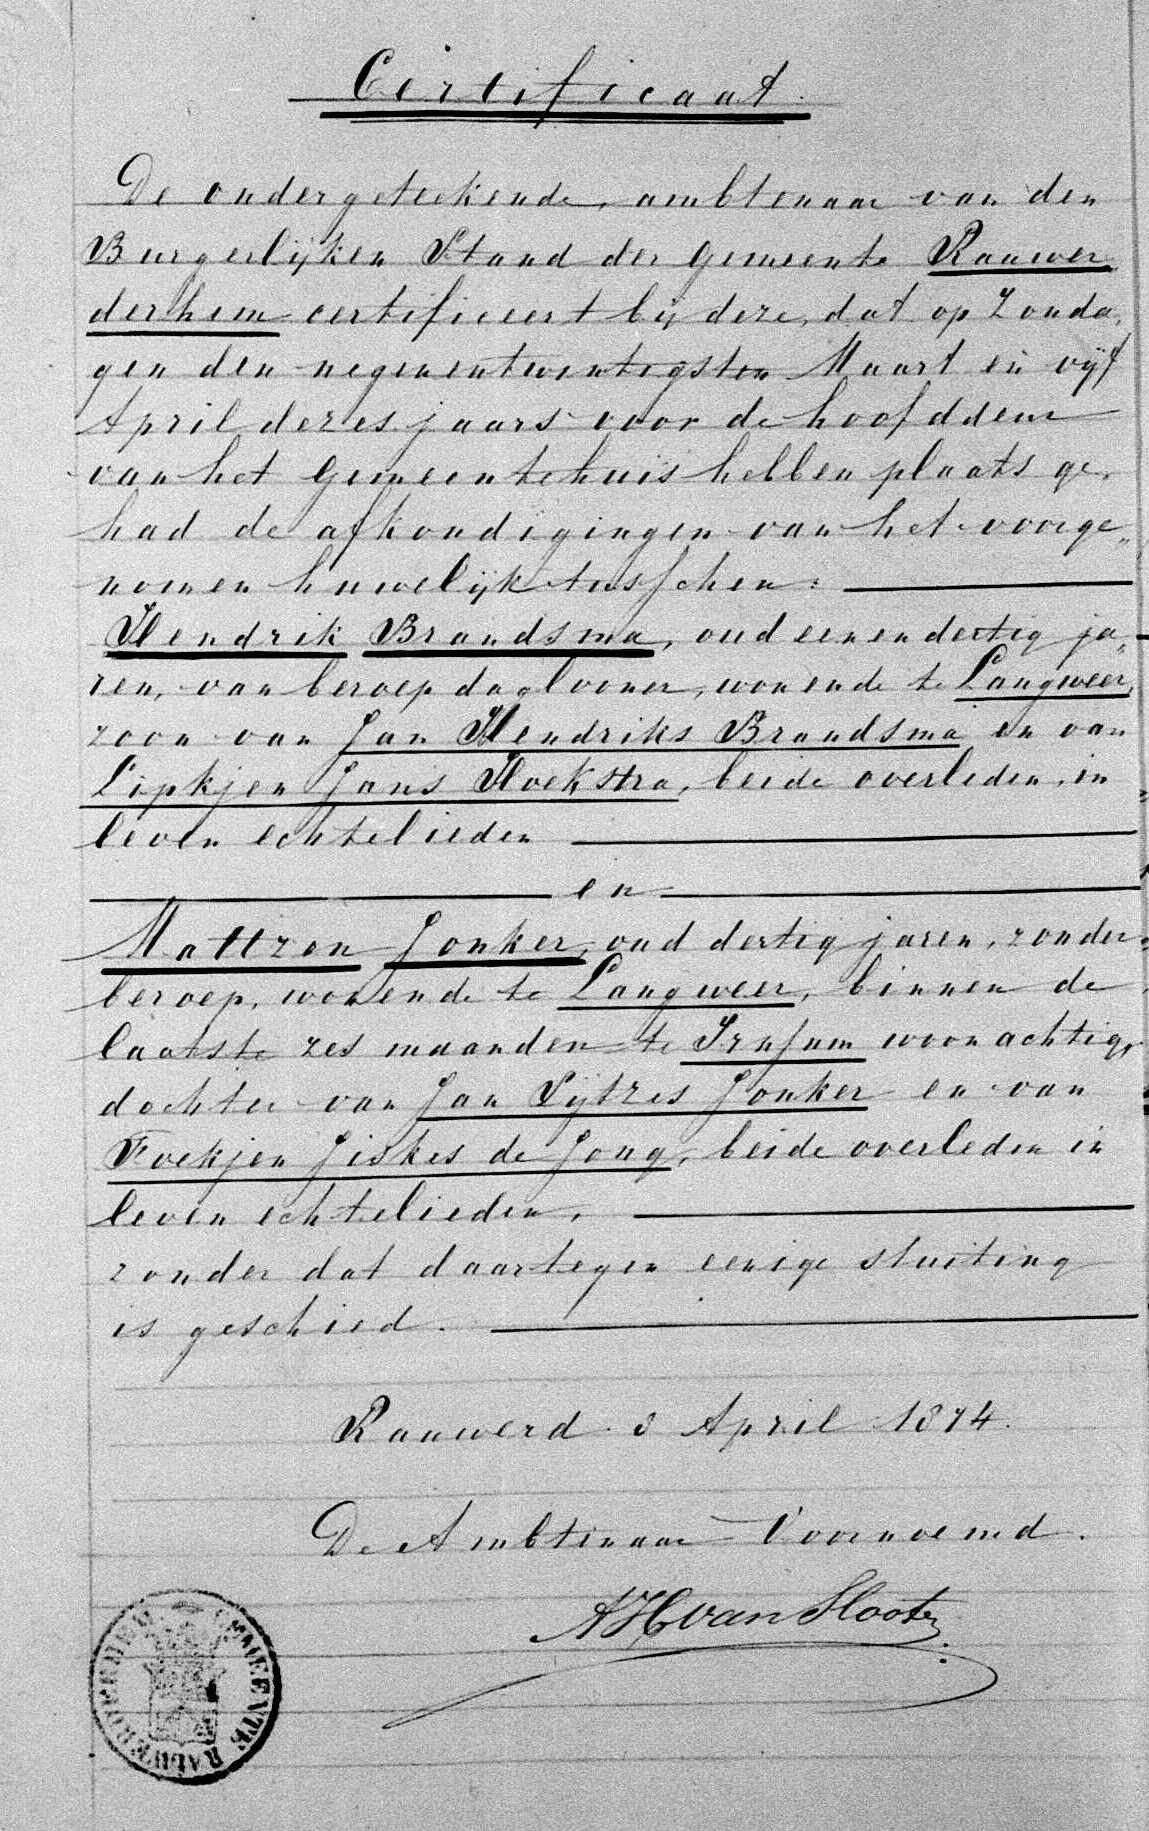 Certificaat.
De ondergeteekende, ambtenaar van den
Burgerlijken Stand der Gemeente Rauwer
derhem certificeert bij deze, dat op Zonda,
gen den negenentwintigsten Maart en vijf
April dezes jaars voor de hoofddeur
van het Gemeentehuis hebben plaats ge,
had de afkondigingen van het voorge„
nomen huwelijk tusschen:
Hendrik Brandsma, oud eenendertig ja„
ren, van beroep daglooner, wonende te Langweer,
zoon van Jan Hendriks Brandsma en van
Lipkjen Jans Hoekstra, beide overleden, in
leven echtelieden
en
Mattzen Jonker, oud dertig jaren, zonder
beroep, wonende te Langweer, binnen de
laatste zes maanden te Irnsum woonachtig,
dochter van Jan Sijtzes Jonker en van
Foekjen Jiskes de Jong, beide overleden in
leven echtelieden,
zonder dat daartegen eenige stuiting
is geschied.
Rauwerd 8 April 1874.
De Ambtenaar Voornoemd.
AH van Slooten
GEMEENTE RAUWERDERHEM